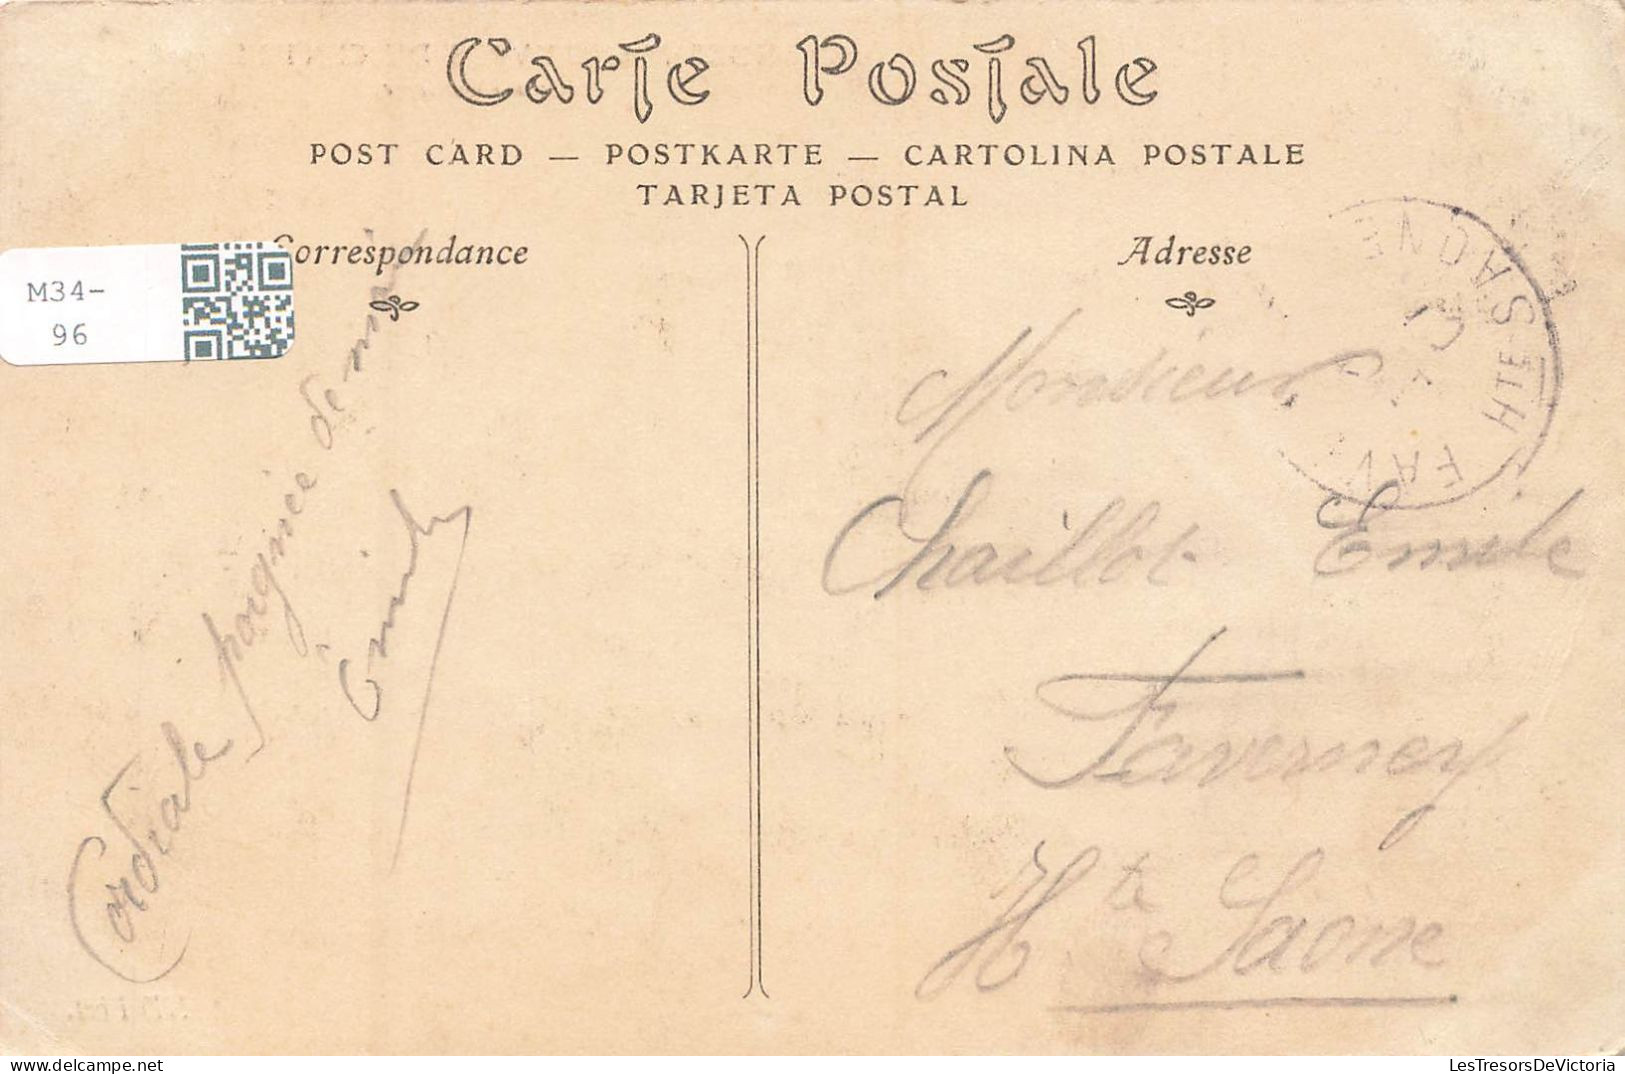 Carte Postale
POST CARD — POSTKARTE — CARTOLINA POSTALE
TARJETA POSTAL
Correspondance
Adresse
M34-
96
Cordiale poignée de main
Monsieur
Chaillot Emile
Faverney
Hte Saône
FAV
HTE SAONE
LesTresorsDeVictoria